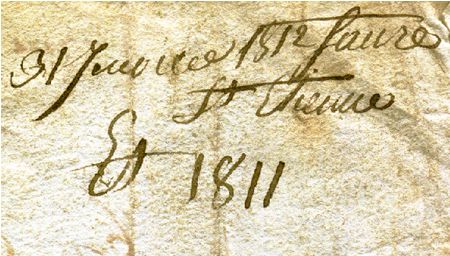 31 Janvier 1812 faure
St Etienne
Et 1811